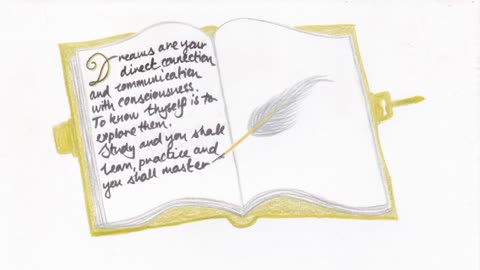 Dreams are your
direct connection
and communication
with consciousness.
To know thyself is to
explore them.
Study and you shall
learn, practice and
you shall master